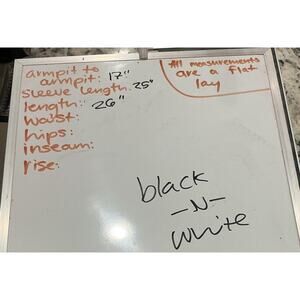 armpit to
armpit: 17"
sleeve length: 25"
length: 26"
waist:
hips:
inseam:
rise:
All measurements
are a flat
lay
black
-N-
white